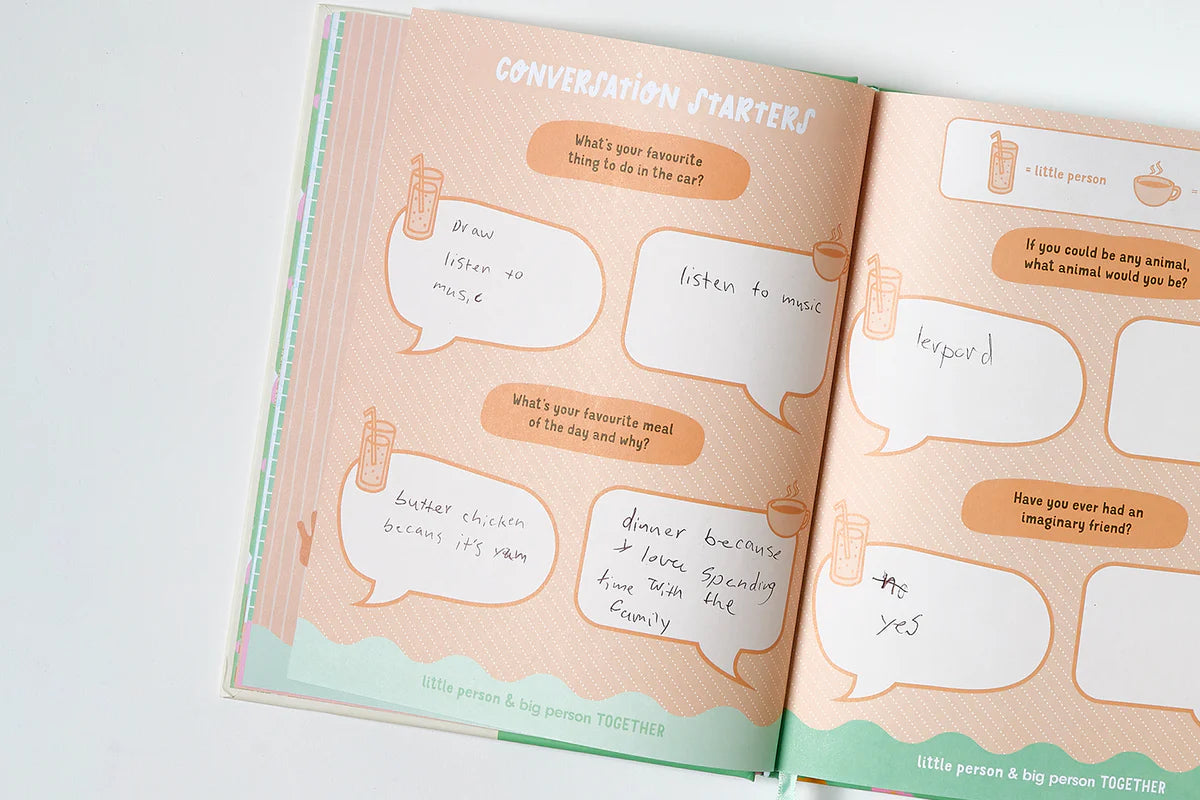 CONVERSATION STARTERS
What's your favourite
thing to do in the car?
Draw
listen to
music
listen to music
What's your favourite meal
of the day and why?
butter chicken
becaus it's yum
dinner because
I love spending
time with the
family
little person & big person TOGETHER
= little person
=
If you could be any animal,
what animal would you be?
lerpord
Have you ever had an
imaginary friend?
no
yes
little person & big person TOGETHER